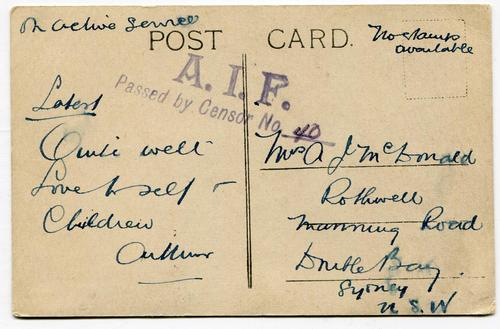 On active service
No stamps
available
POST CARD.
A. I. F.
Passed by Censor No. 40
Latest
Quite well
Love to self &
Children
Arthur
Mrs A J McDonald
Rothwell
Manning Road
Double Bay.
Sydney
N. S. W